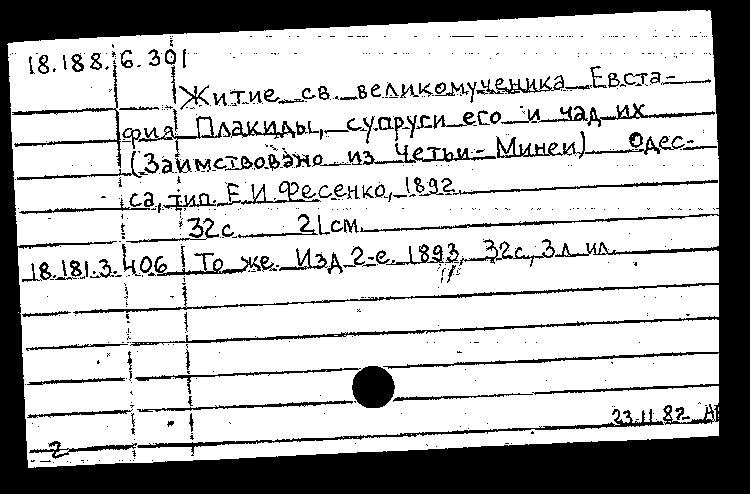 18.188.6.301
Житие св. великомученика Евста-
фия Плакиды, супруги его и чад их
(Заимствовано из Четьи-Минеи) Одес-
са, тип. Е.И.Фесенко, 1892.
32с. 21см.
18.181.3.406 То же. Изд 2-е. 1893, 32с., 3л ил.
23.11.82
2